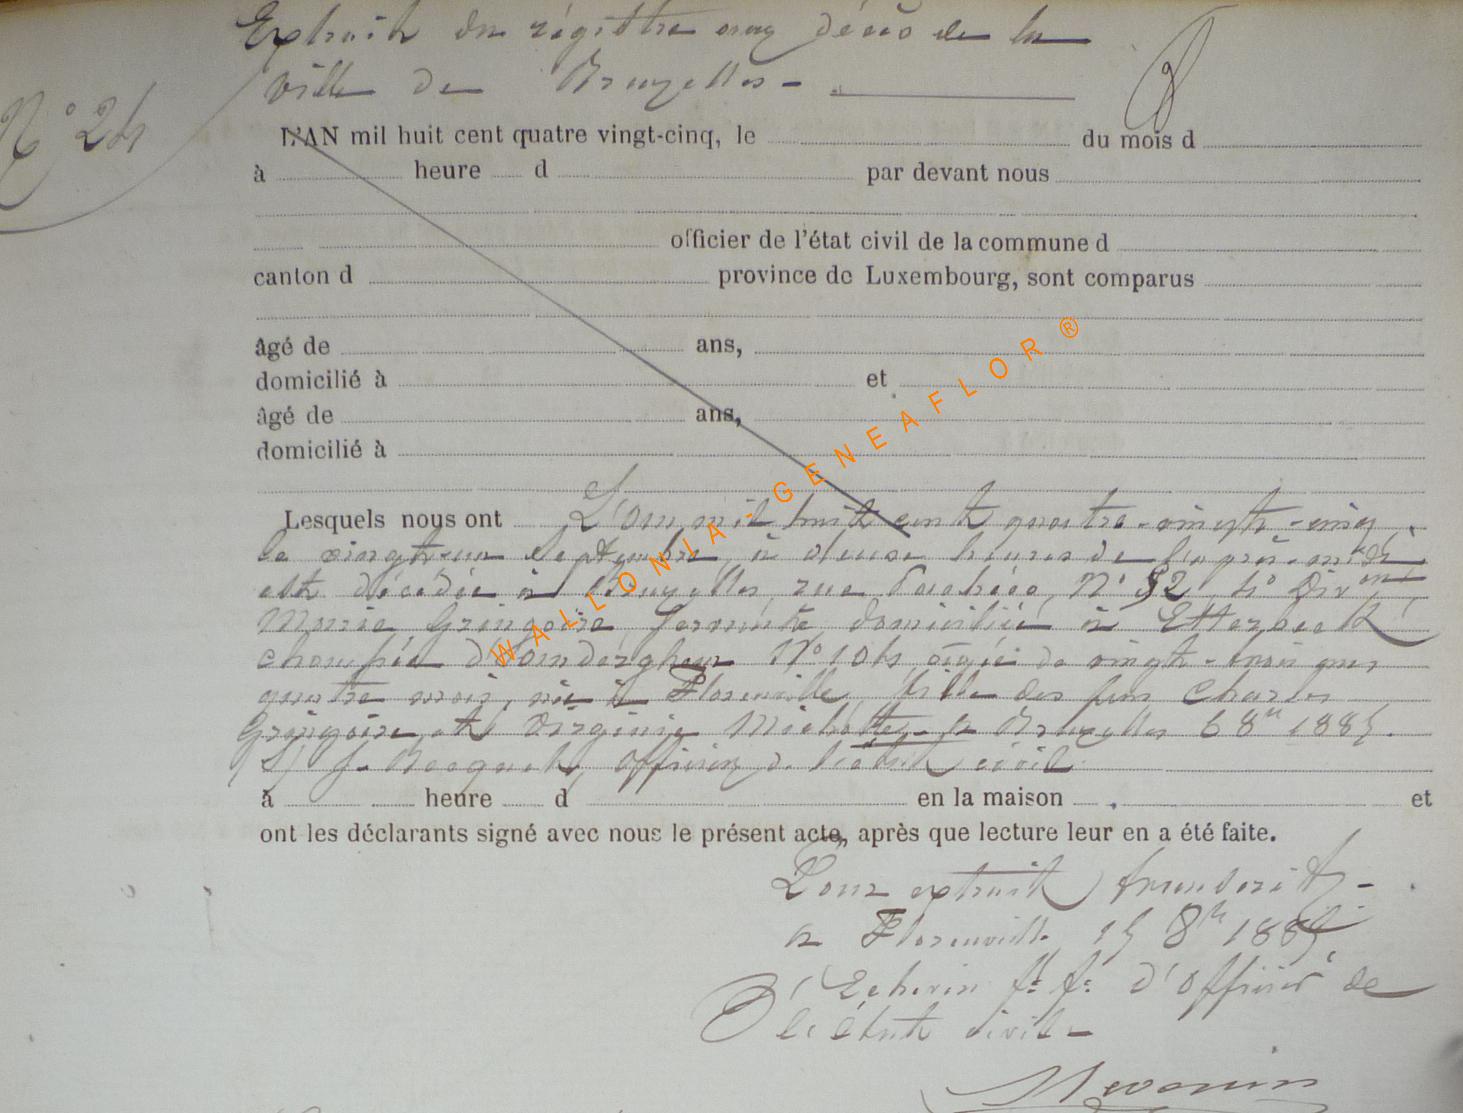 Extrait du régistre aux décès de la
ville de Bruxelles -
N° 24
L'AN mil huit cent quatre vingt-cinq, le du mois d
à heure d par devant nous
officier de l'état civil de la commune d
canton d province de Luxembourg, sont comparus
âgé de ans,
domicilié à et
âgé de ans,
domicilié à
Lesquels nous ont L'an mil huit cent quatre-vingt-cinq,
le vingt-un Septembre, à deux heures de l'après-midi
est décédée à Bruxelles, rue N° 52, 4° Divon
Marie Gringoire servante domiciliée à Etterbeek,
chaussée d'Auderghem N° 104 âgée de vingt-trois ans
quatre mois, née à Florenville, fille des feus Charles
Gringoire, et Virginie Michotte. - a Bruxelles 6 8bre 1885.
S/ J. Becquet, Officier de l'état civil
à heure d en la maison et
ont les déclarants signé avec nous le présent acte, après que lecture leur en a été faite.
Pour extrait transcrit -
a Florenville, 15 8bre 1885.
L'Echevin ff. d'Officier de
l'état civil -
WALLONIA - GENEAFLOR ®